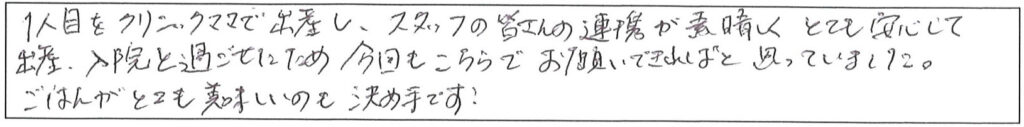 1人目をクリニックママで出産し、スタッフの皆さんの連携が素晴しく とても安心して
出産、入院と過ごせたため 今回もこちらで お願いできればと 思っていました。
ごはんがとても美味しいのも 決め手です!